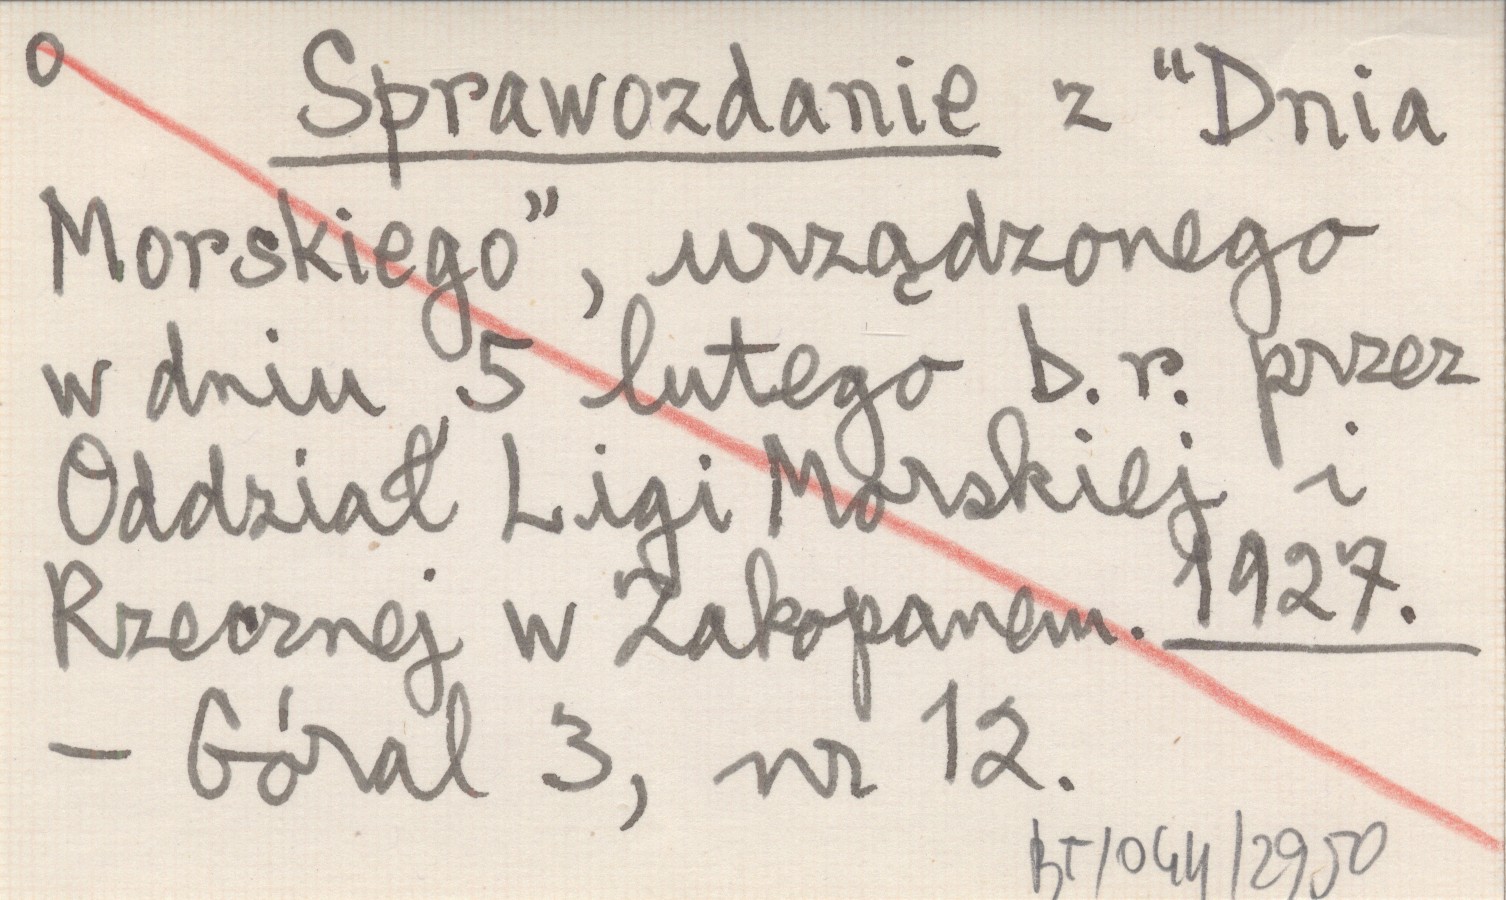 o Sprawozdanie z "Dnia
Morskiego", urządzonego
w dniu 5 lutego b.r. przez
Oddział Ligi Morskiej i
Rzecznej w Zakopanem. 1927.
— Góral 3, nr 12.
BT/044/2950